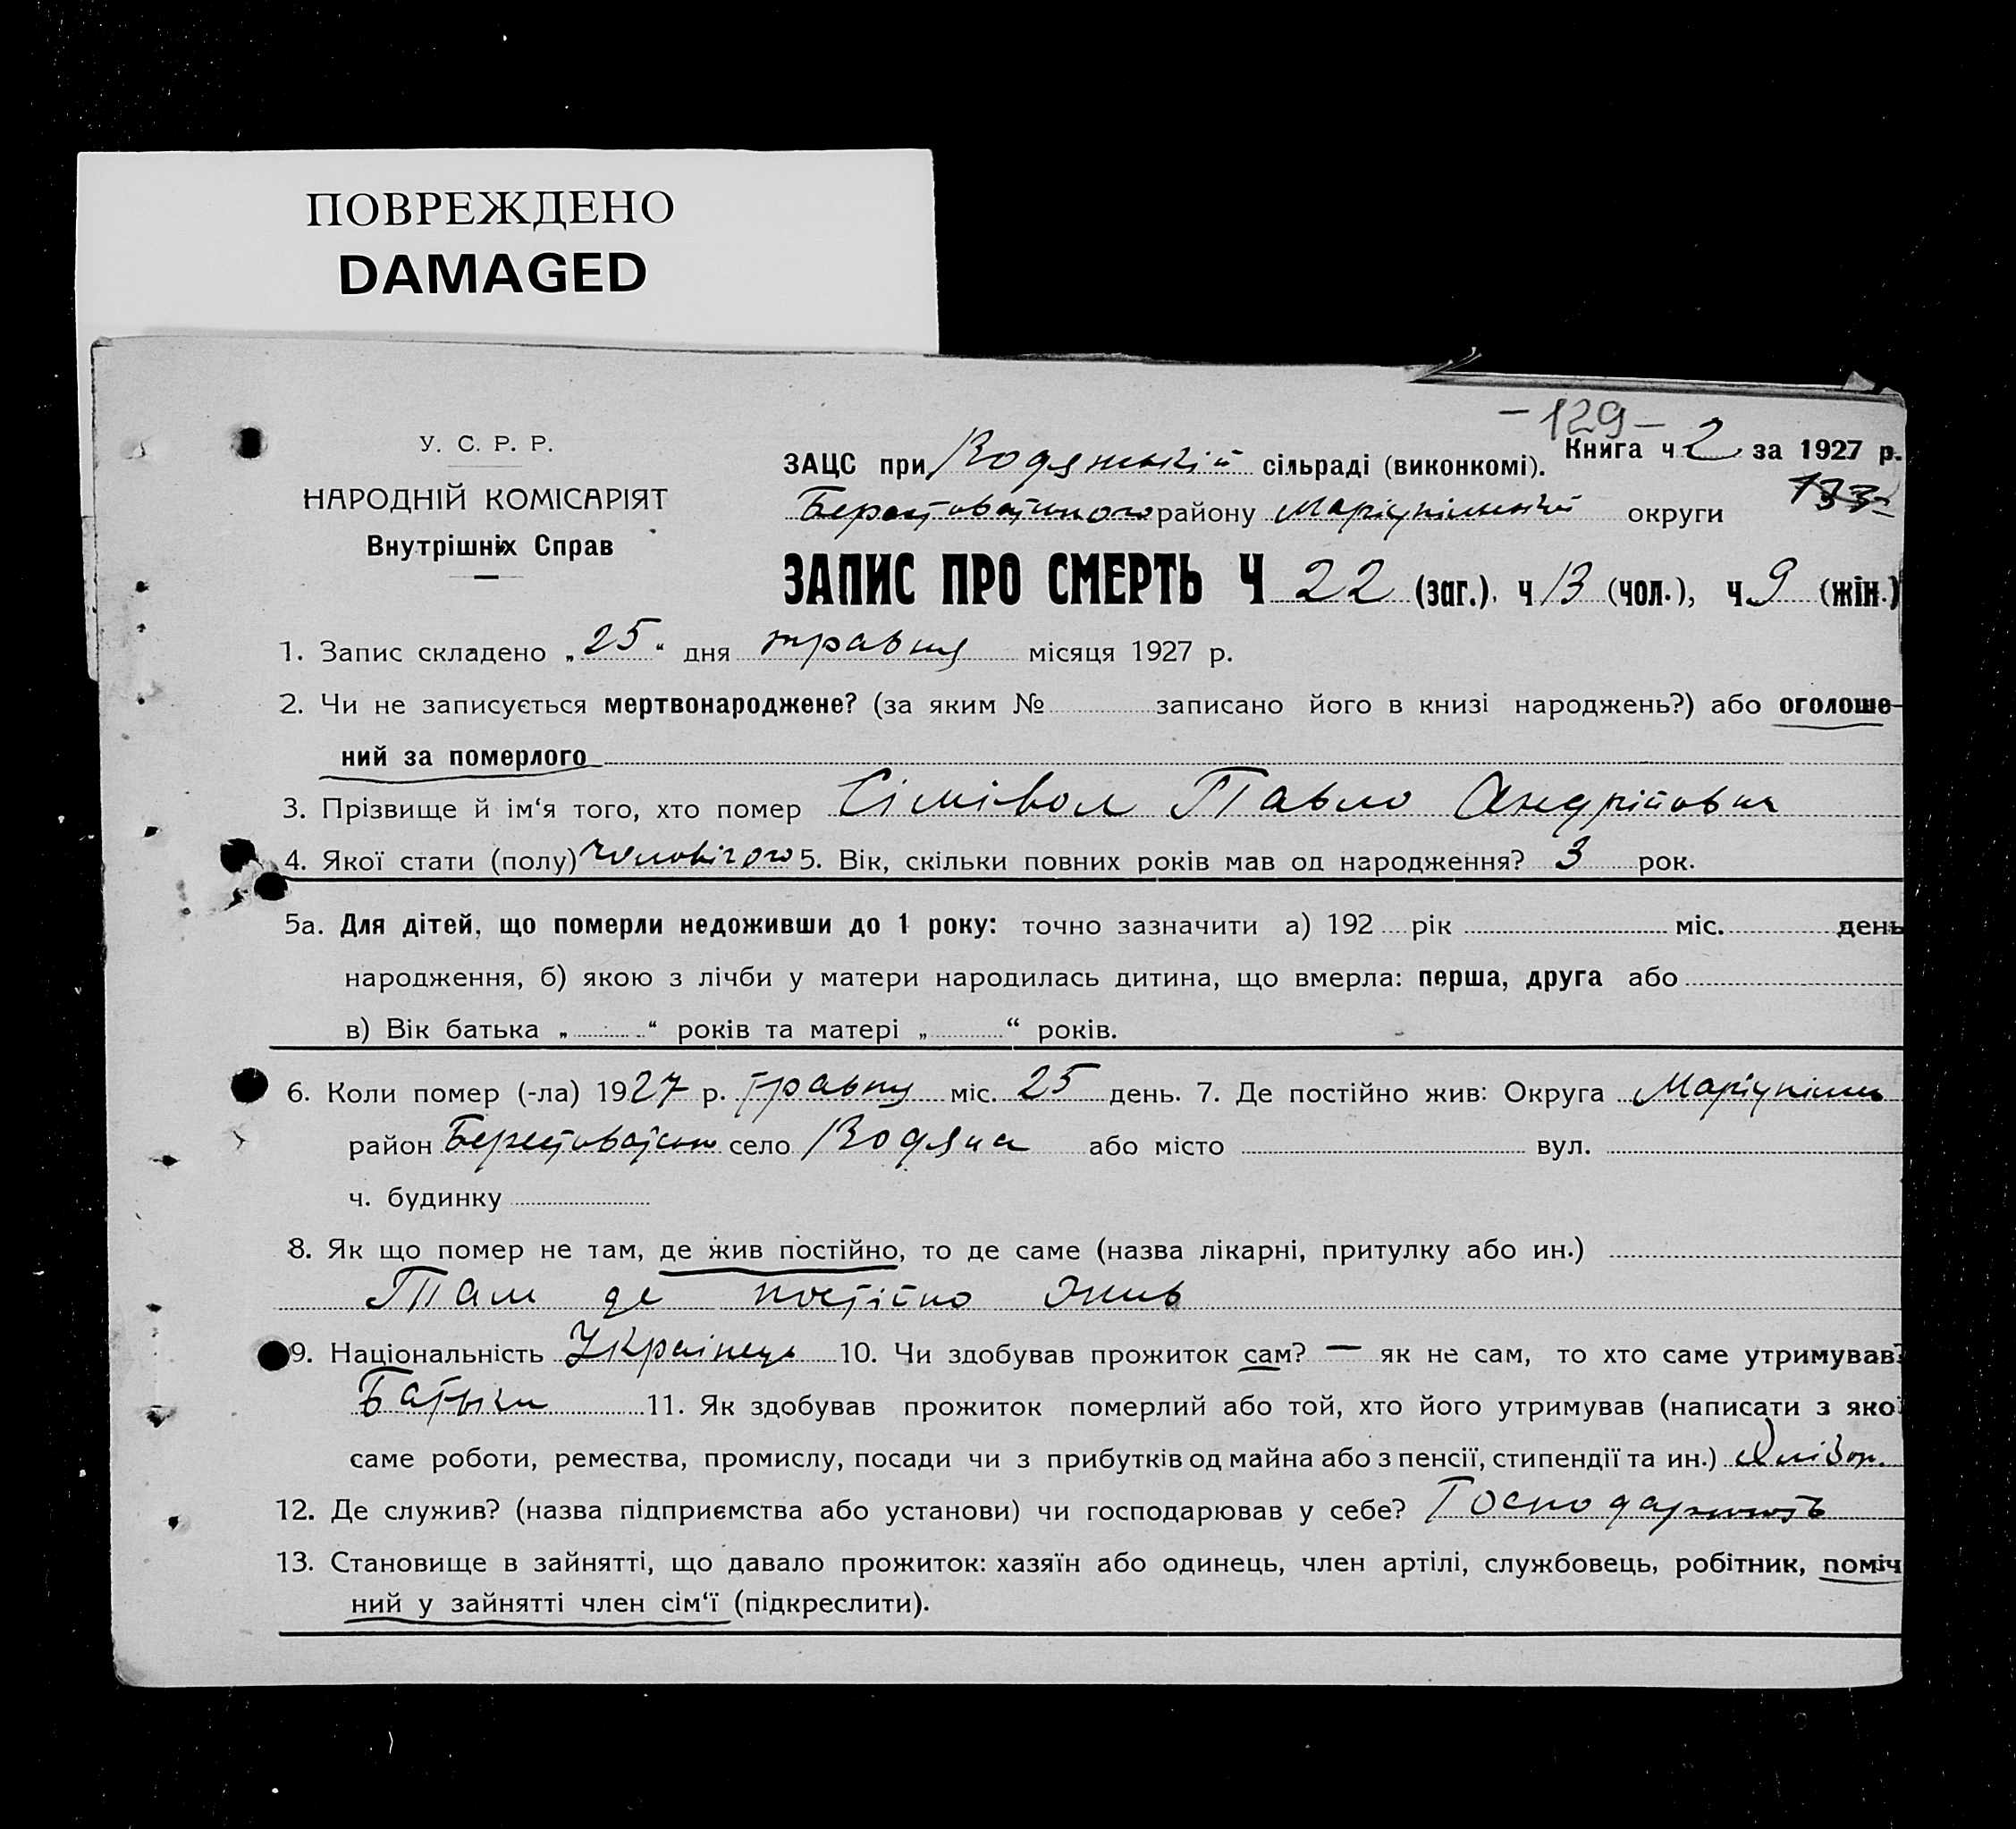 ПОВРЕЖДЕНО
DAMAGED
-129-
У. С. Р. Р.
НАРОДНІЙ КОМІСАРІЯТ
Внутрішніх Справ
Книга ч 2 за 1927 р.
ЗАЦС при Водянській сільраді (виконкомі).
133
району Маріупільської округи
ЗАПИС ПРО СМЕРТЬ Ч 22 (заг.), ч 13 (чол.), ч 9 (жін.)
1. Запис складено „25“ дня травня місяця 1927 р.
2. Чи не записується мертвонароджене? (за яким № записано його в книзі народжень?) або оголоше-
ний за померлого
3. Прізвище й ім‘я того, хто помер Сімівол Павло Андрійович
4. Якої стати (полу) чоловічого 5. Вік, скільки повних років мав од народження? 3 рок.
5а. Для дітей, що померли недоживши до 1 року: точно зазначити а) 192 рік міс. день
народження, б) якою з лічби у матери народилась дитина, що вмерла: перша, друга або
в) Вік батька „ “ років та матері „ “ років.
6. Коли помер (-ла) 1927 р. травня міс. 25 день. 7. Де постійно жив: Округа Маріупіль
район село Водяна або місто вул.
ч. будинку
8. Як що помер не там, де жив постійно, то де саме (назва лікарні, притулку або ин.)
Там де постійно жив
9. Національність Українець 10. Чи здобував прожиток сам? — як не сам, то хто саме утримував?
Батьки 11. Як здобував прожиток померлий або той, хто його утримував (написати з якої
саме роботи, ремества, промислу, посади чи з прибутків од майна або з пенсії, стипендії та ин.) Хлібор.
12. Де служив? (назва підприємства або установи) чи господарював у себе?
13. Становище в зайнятті, що давало прожиток: хазяїн або одинець, член артілі, службовець, робітник, поміч
ний у зайнятті член сім‘ї (підкреслити).